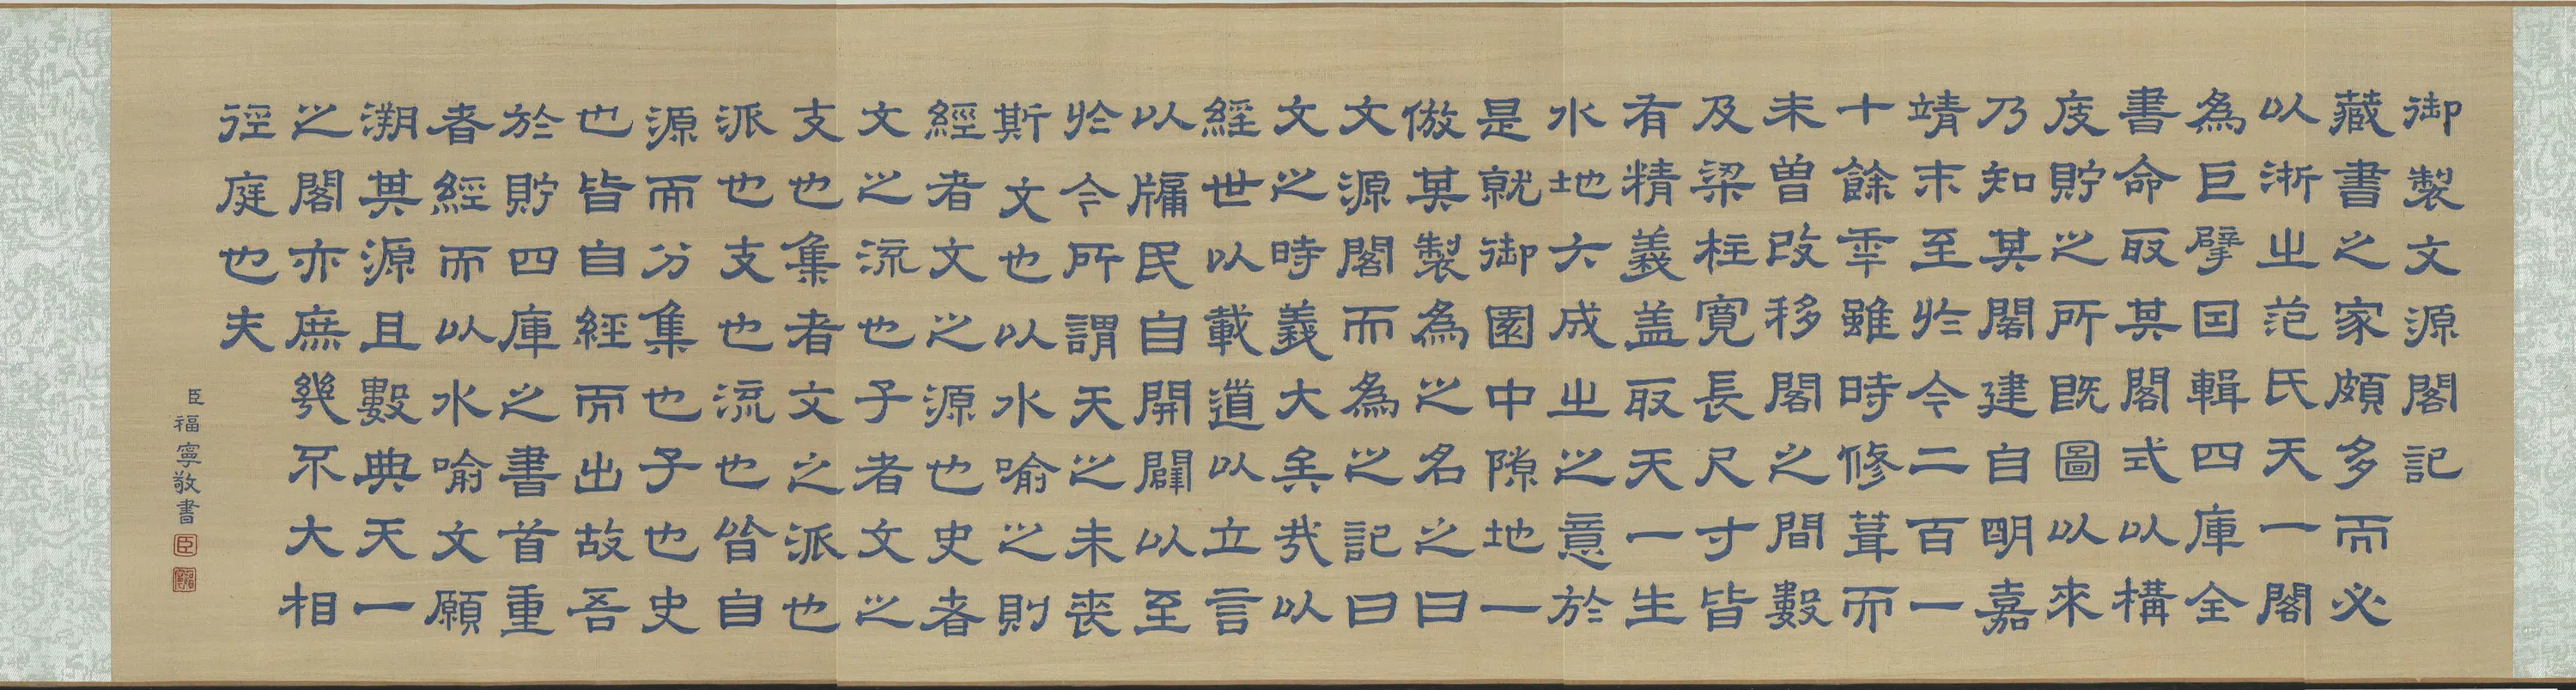 御製文源閣記
藏書之家頗多而必
以浙之范氏天一閣
為巨擘因輯四庫全
書命取其閣式以構
庋貯之所既圖以來
乃知其閣建自明嘉
靖末至於今二百一
十餘年雖時修葺而
未曾改移閣之間數
及梁柱寬長尺寸皆
有精義盖取天一生
水地六成之之意於
是就御園中隙地一
倣其製為之名之曰
文源閣而為之記曰
文之時義大矣哉以
經世以載道以立言
以牖民自開闢以至
於今所謂天之未喪
斯文也以水喻之則
經者文之源也史者
文之流也子者文之
支也集者文之派也
派也支也流也皆自
源而分集也子也史
也皆自經而出故吾
於貯四庫之書首重
者經而以水喻文願
溯其源且數典天一
之閣亦庶幾不大相
徑庭也夫
臣福寧敬書
臣